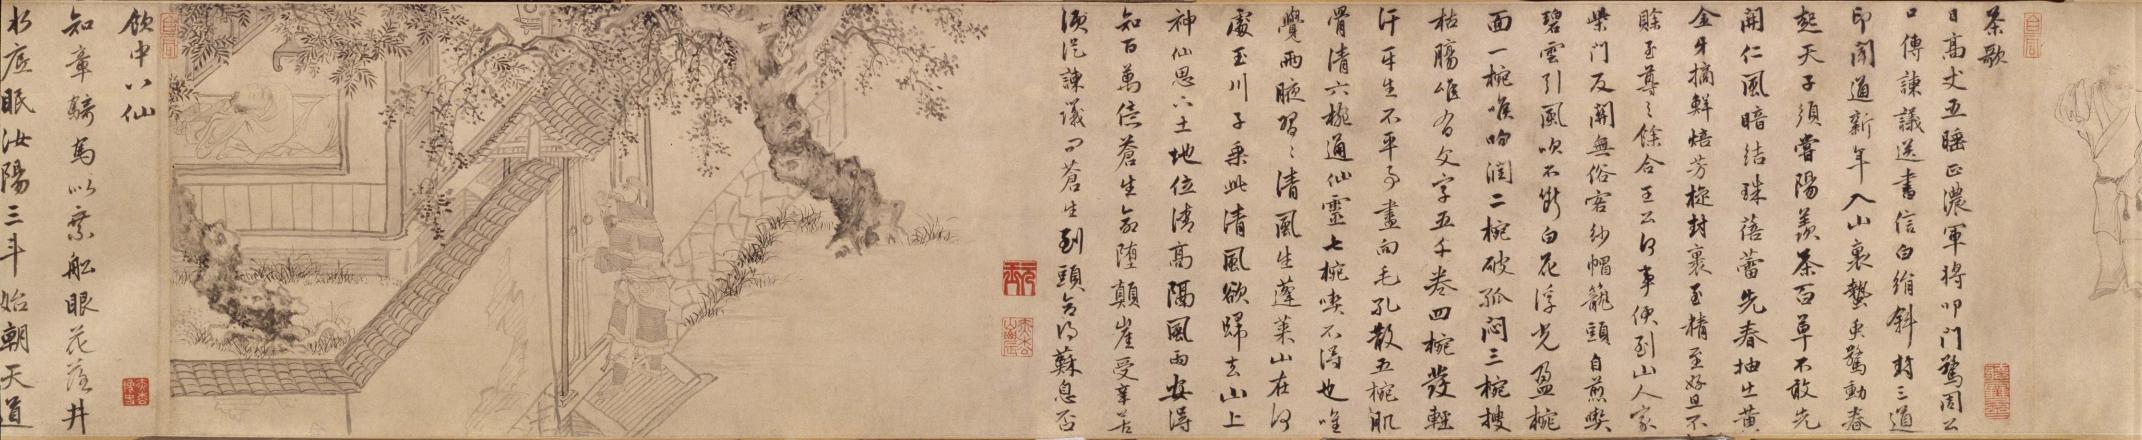 茶歌
日高丈五睡正濃軍將叩門驚周公
口傳諫議送書信白絹斜封三道
印開道新年入山裏蟄虫驚動春
起天子須嘗陽羨茶百草不敢先
開仁風暗結珠蓓蕾先春抽出黃
金牙摘鮮焙芳旋封裹至精至好且不
餘至尊之餘合王公何事便到山人家
柴門反關無俗客紗帽籠頭自煎喫
碧雲引風吹不斷白花浮光盈椀
面一椀喉吻潤二椀破孤悶三椀搜
枯腸唯有文字五千卷四椀發輕
汗平生不平事盡向毛孔散五椀肌
骨清六椀通仙靈七椀喫不得也唯
覺兩腋習〻清風生蓬萊山在何
處玉川子乘此清風欲歸去山上
神仙愚下土地位清高隔風雨安得
知百萬億蒼生命墮顛崖受辛苦
須從諫議問蒼生到頭合得蘇息否
飲中八仙
知章騎馬似乘船眼花落井
水底眠汝陽三斗始朝天道